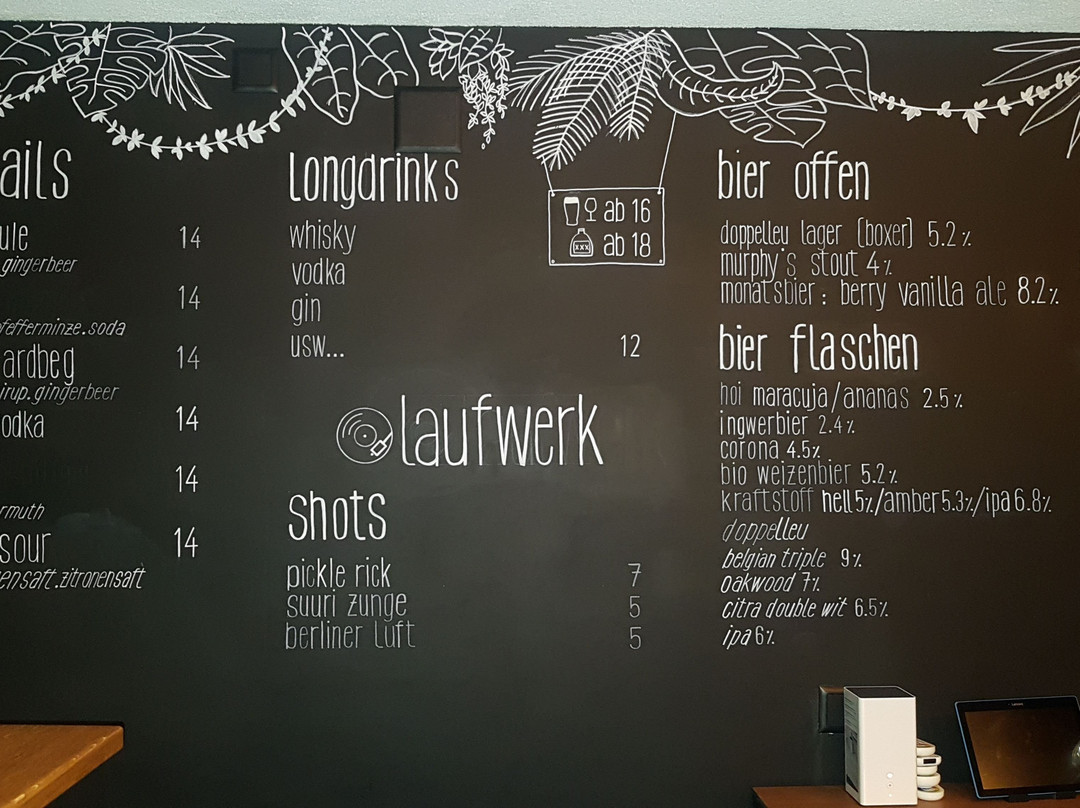 ails
ule 14
gingerbeer
14
pfefferminze.soda
ardbeg 14
irup.gingerbeer
odka 14
14
rmuth
sour 14
ensaft.zitronensaft
longdrinks
whisky
vodka
gin
usw... 12
ab 16
xxx ab 18
laufwerk
shots
pickle rick 7
suuri zunge 5
berliner luft 5
bier offen
doppelleu lager (boxer) 5.2%
murphy's stout 4%
monatsbier: berry vanilla ale 8.2%
bier flaschen
hoi maracuja/ananas 2.5%
ingwerbier 2.4%
corona 4.5%
bio weizenbier 5.2%
kraftstoff hell 5%/amber 5.3%/ipa 6.8%
doppelleu
belgian triple 9%
oakwood 7%
citra double wit 6.5%
ipa 6%